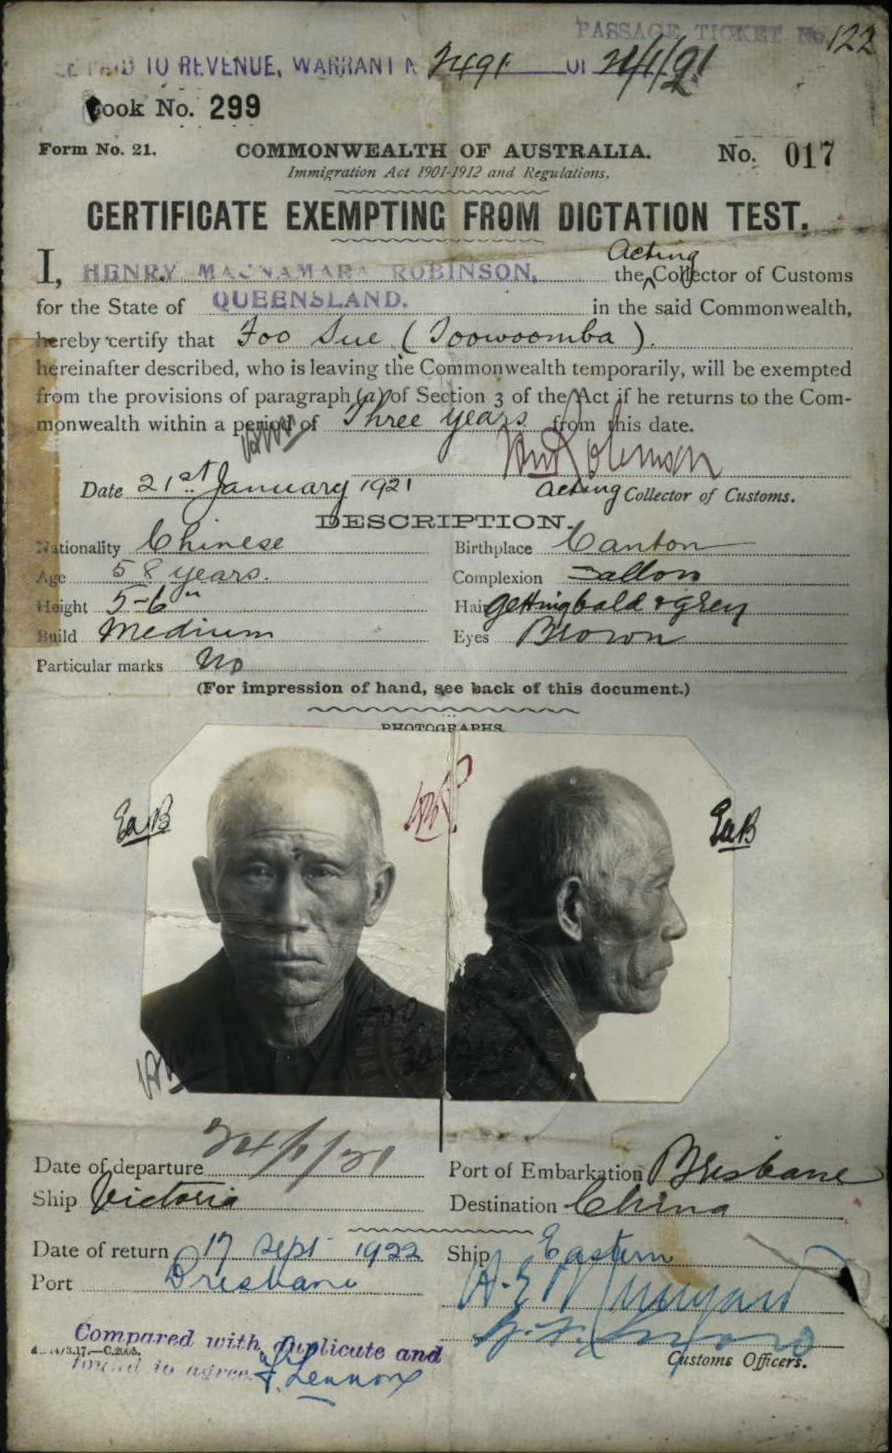 PASSAGE TICKET No. 122
PAID TO REVENUE, WARRANT N 2491 OF 21/1/21
Book No. 299
Form No. 21. COMMONWEALTH OF AUSTRALIA. No. 017
Immigration Act 1901-1912 and Regulations.
CERTIFICATE EXEMPTING FROM DICTATION TEST.
I, HENRY MACNAMARA ROBINSON, the Acting Collector of Customs
for the State of QUEENSLAND. in the said Commonwealth,
hereby certify that Foo Sue (Toowoomba).
hereinafter described, who is leaving the Commonwealth temporarily, will be exempted
from the provisions of paragraph (a) of Section 3 of the Act if he returns to the Com-
monwealth within a period of Three years from this date.
Robinson
Date 21st January 1921 Acting Collector of Customs.
DESCRIPTION.
Nationality Chinese Birthplace Canton
Age 58 years. Complexion Sallow
Height 5-6" Hair getting bald & grey
Build Medium Eyes Brown
Particular marks No
(For impression of hand, see back of this document.)
PHOTOGRAPHS
EaB
EaB
Date of departure 24/1/21 Port of Embarkation Brisbane
Ship Victoria Destination China
Date of return 17 Sept 1922 Ship Eastern
Port Brisbane
Compared with duplicate and
found to agree. F. Lennox
Customs Officers.